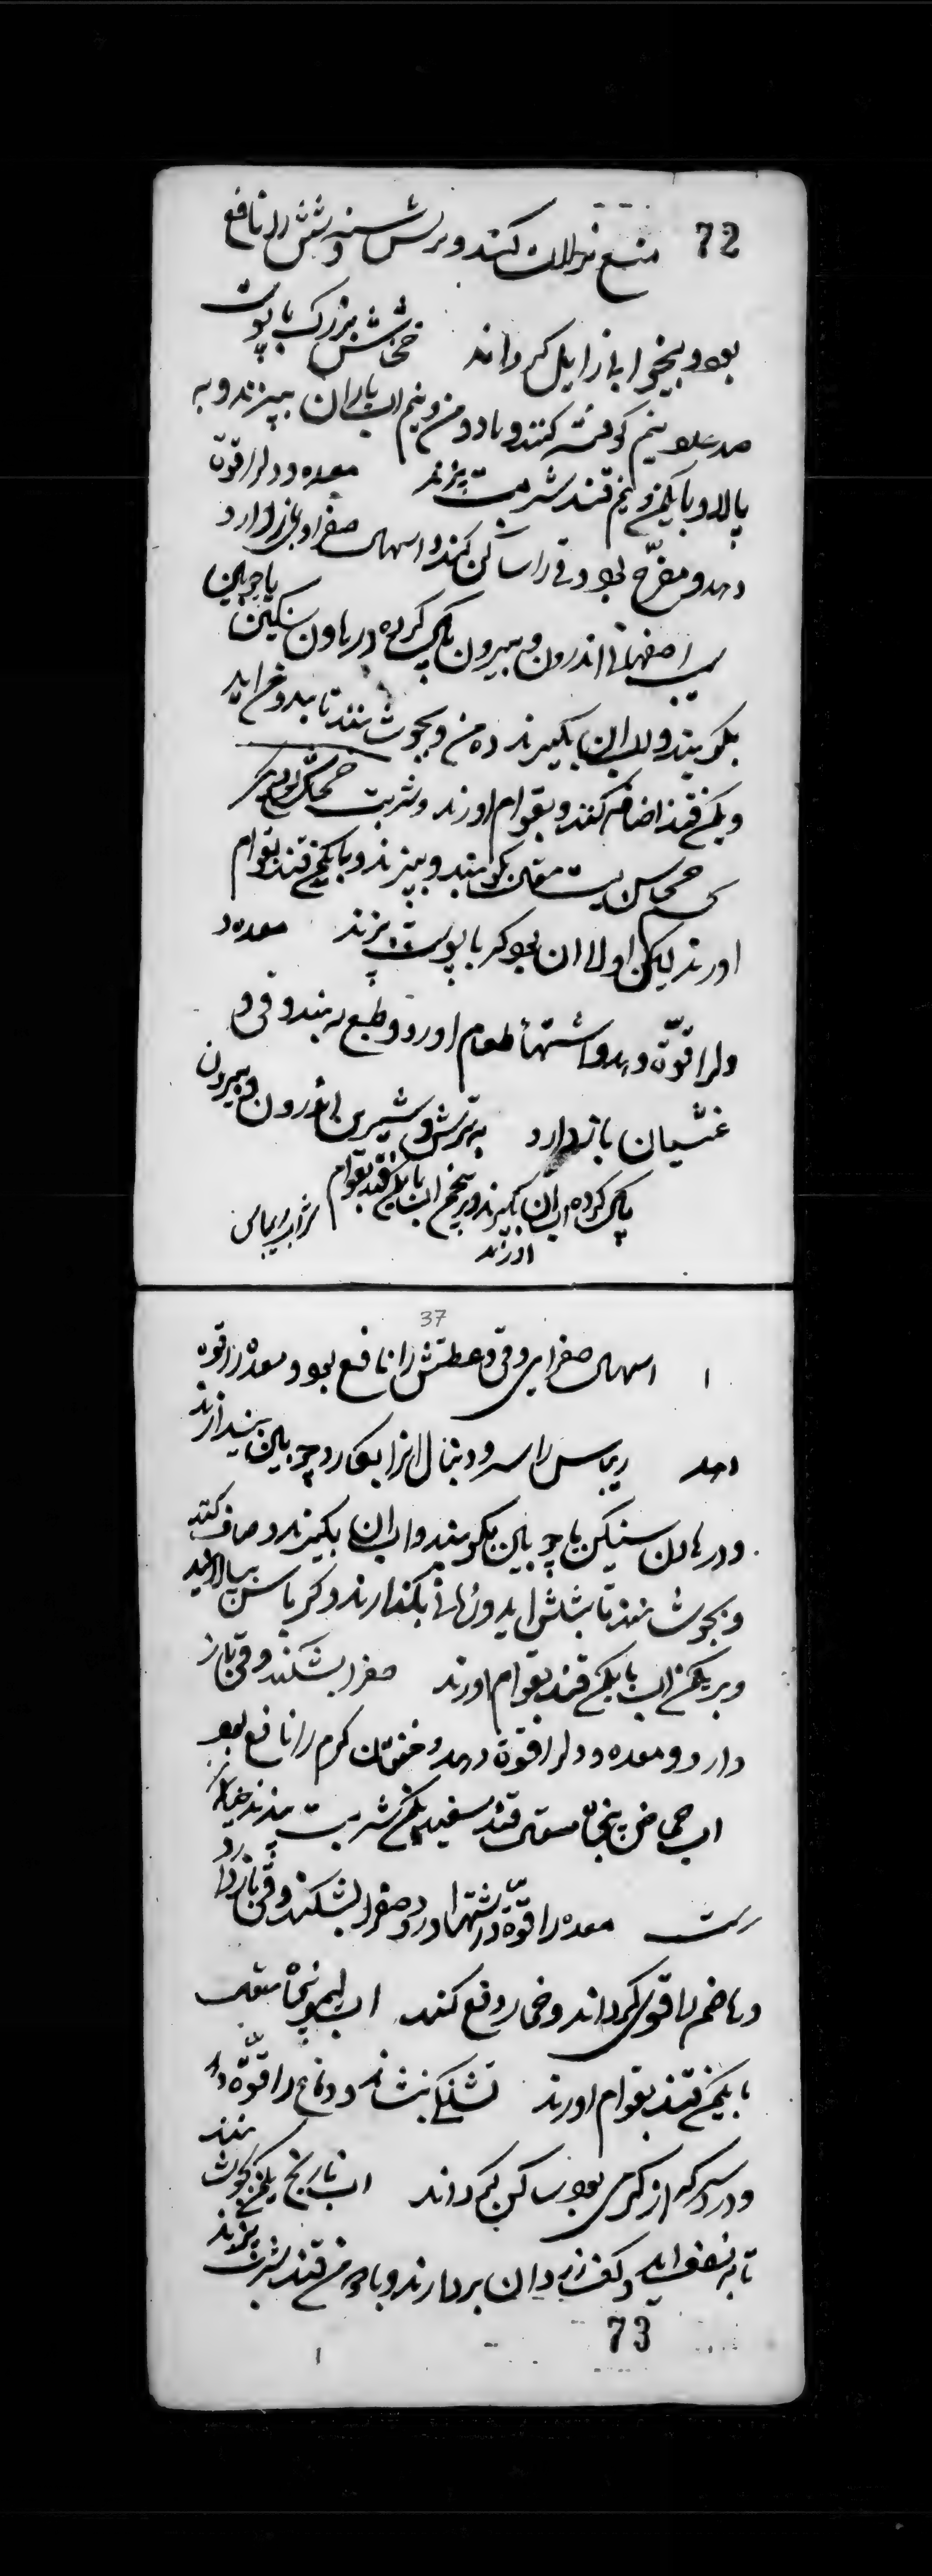 72
منع نزلات کند و سرفه و شش را نافع
بود و بیخوابی زایل کرداند خشخاش بزرک با پوست
صد عدد نیم کوفته کنند و با دو من و نیم اب باران بپزند و به
پالاید و با یکمن و نیم قند شربت پزند معده و دل را قوة
دهد و مفرّح بود و قی را ساکن کند و اسهال صفراوی بازدارد
سیب اصفهانی اندرون و بیرون پاک کرده در هاون سنکین با چوبین
بکوبند و اب ان بکیرند ده من و بجوشانند تا بدو من اید
و یکمن قند اضافه کنند و بقوام اورند و شربت
بکوبند و بپزند و با یکمن قند بقوام
اورند لیکن اولا ان بود کر با پوست پزند معده و
دل را قوّة دهد و اشتهاء طعام اورد و طبع ببندد و قی و
غثیان بازدارد به ترش و شیرین اندرون و بیرون
پاک کرده اب ان بکیرند و پنجمن اب با یکمن قند بقوام
اورند شراب ریباس
37
اسهال صفرایی و قی و عطش را نافع بود و معده را قوة
دهد ریباس را سر و دنبال انرا بکارد چوبین بیندازند
و در هاون سنکین با چوبین بکوبند و اب ان بکیرند و صاف کنند
و بجوشانند تا بثلث اید و رها بکذارند و کرباس بپالایند
و بر یکمن اب با یکمن قند بقوام اورند صفرا بشکند و قی باز
دارد و معده و دل را قوة دهد و خفقان کرم را نافع بود
اب حماض پنجاه مثقال قند سفید یکمن شربت پزند
معده را قوّة و اشتها اورد و صفرا بشکند و قی بازدارد
و هاضم را قوی کرداند و خمار دفع کند اب لیمو پنجاه مثقال
با یکمن قند بقوام اورند تشنکی بنشاند و دماغ را قوّة دهد
و درد سر که از کرمی بود ساکن کرداند اب نارنج یکمن بجوشانند
تا به نصف اید و کف از ان بردارند و با دو من قند شربت پزند
73